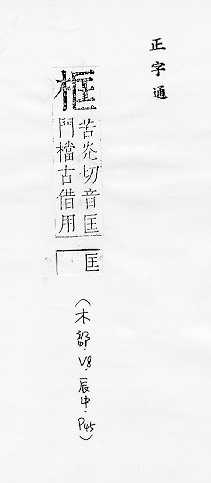 正字通
框
苦光切音匡
門檔古借用
匡
（木部·V8·辰中·P45）